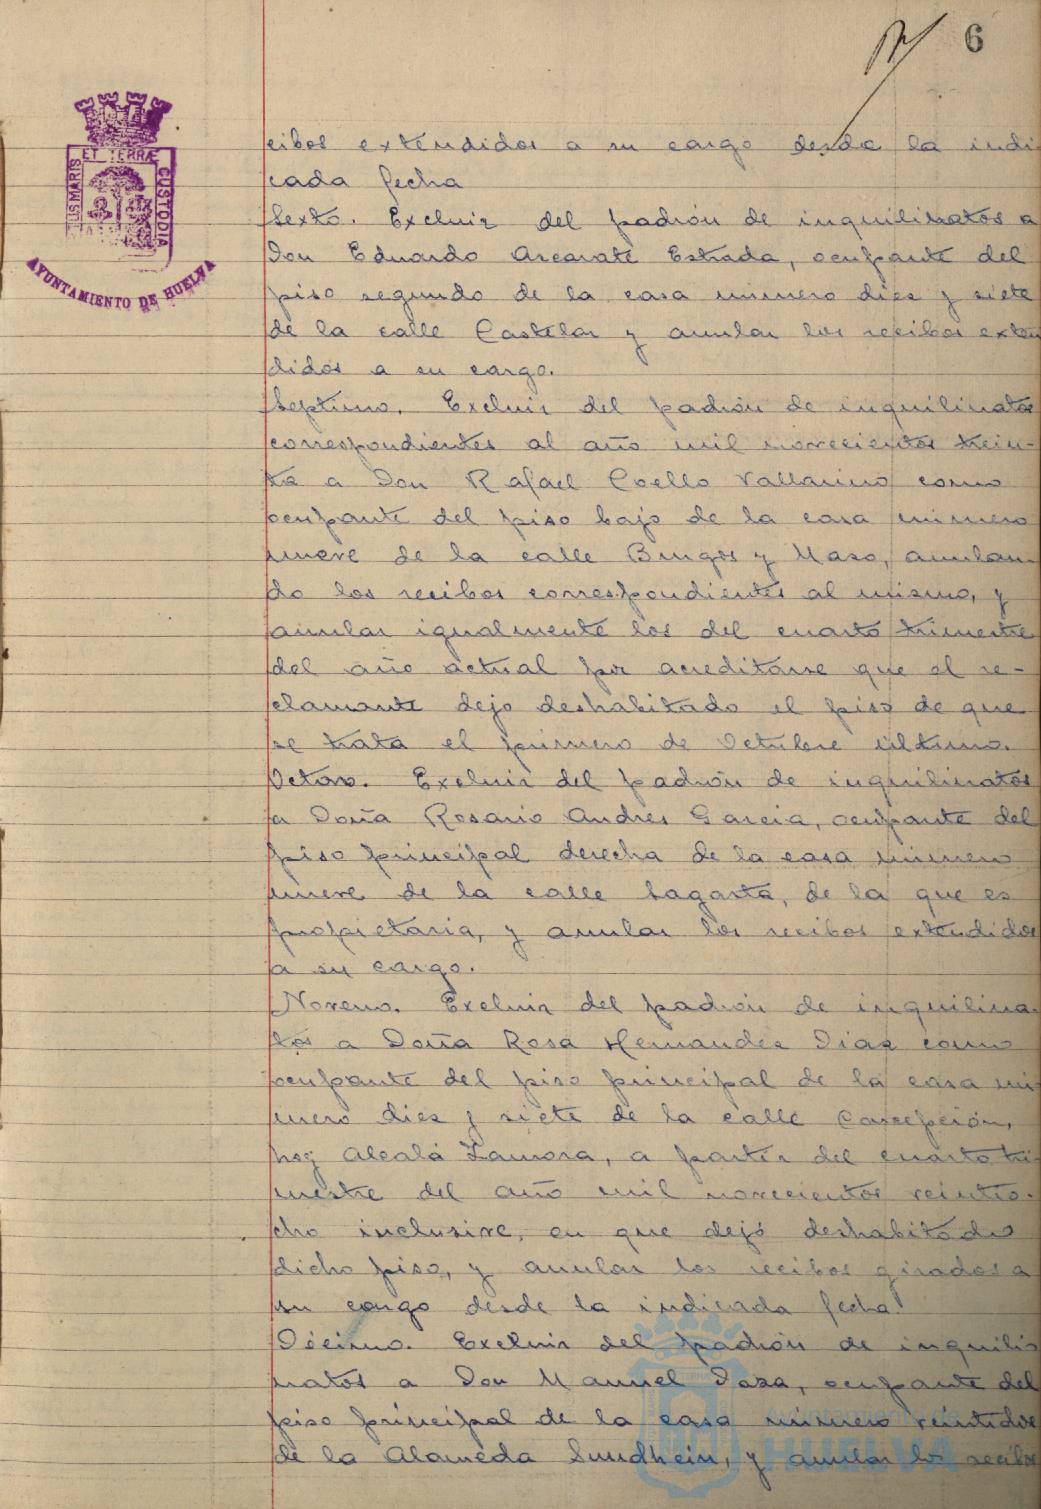 6
PORTUS MARIS ET TERRÆ CUSTODIA
AYUNTAMIENTO DE HUELVA
cibos extendidos a su cargo desde la indi
cada fecha
Sexto. Excluir del padrón de inquilinatos a
Don Eduardo Azcarate Estrada, ocupante del
piso segundo de la casa numero diez y siete
de la calle Castelar y anular los recibos exten
didos a su cargo.
Septimo. Excluir del padrón de inquilinatos
correspondientes al año mil novecientos trein-
ta a Don Rafael Coello Vallarino como
ocupante del piso bajo de la casa numero
nueve de la calle Burgos y Maso, anulan-
do los recibos correspondientes al mismo, y
anular igualmente los del cuarto trimestre
del año actual por acreditarse que el re-
clamante dejo deshabitado el piso de que
se trata el primero de Octubre último.
Octavo. Excluir del padrón de inquilinatos
a Doña Rosario Andres Garcia, ocupante del
piso principal derecha de la casa numero
nueve de la calle Sagasta, de la que es
propietaria, y anular los recibos extendidos
a su cargo.
Noveno. Excluir del padrón de inquilina-
tos a Doña Rosa Hernandez Diaz como
ocupante del piso principal de la casa nú
mero diez y siete de la calle Concepción,
hoy Alcalá Zamora, a partir del cuarto tri-
mestre del año mil novecientos veintio-
cho inclusive, en que dejó deshabitado
dicho piso, y anular los recibos girados a
su cargo desde la indicada fecha.
Décimo. Excluir del padrón de inquili-
natos a Don Manuel Daza, ocupante del
piso principal de la casa número veintidos
de la Alameda Sundhein, y anular los recibos
Ayuntamiento de
HUELVA